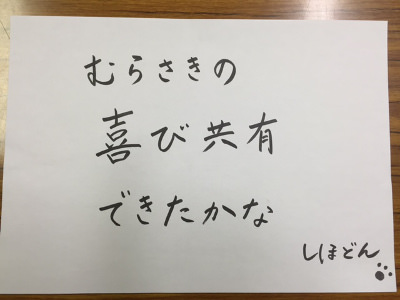 むらさきの
喜び共有
できたかな
しほどん